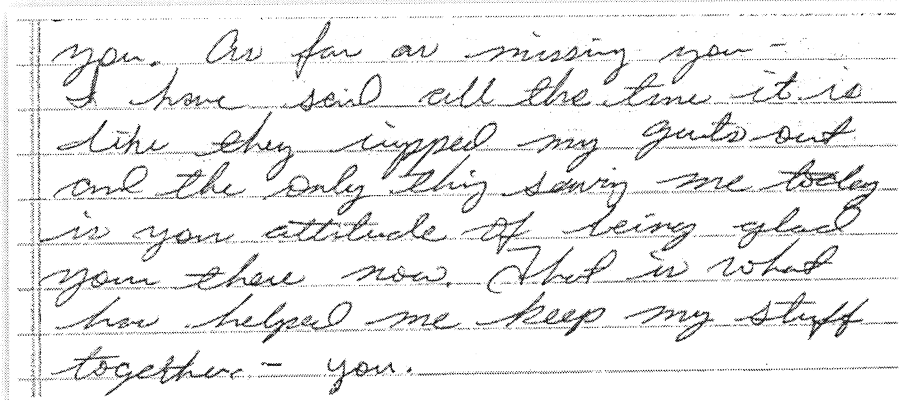 you. As far as missing you -
I have said all the time it is
like they ripped my guts out
and the only thing saving me today
is you attitude of being glad
your there now. That is what
has helped me keep my stuff
together - you.